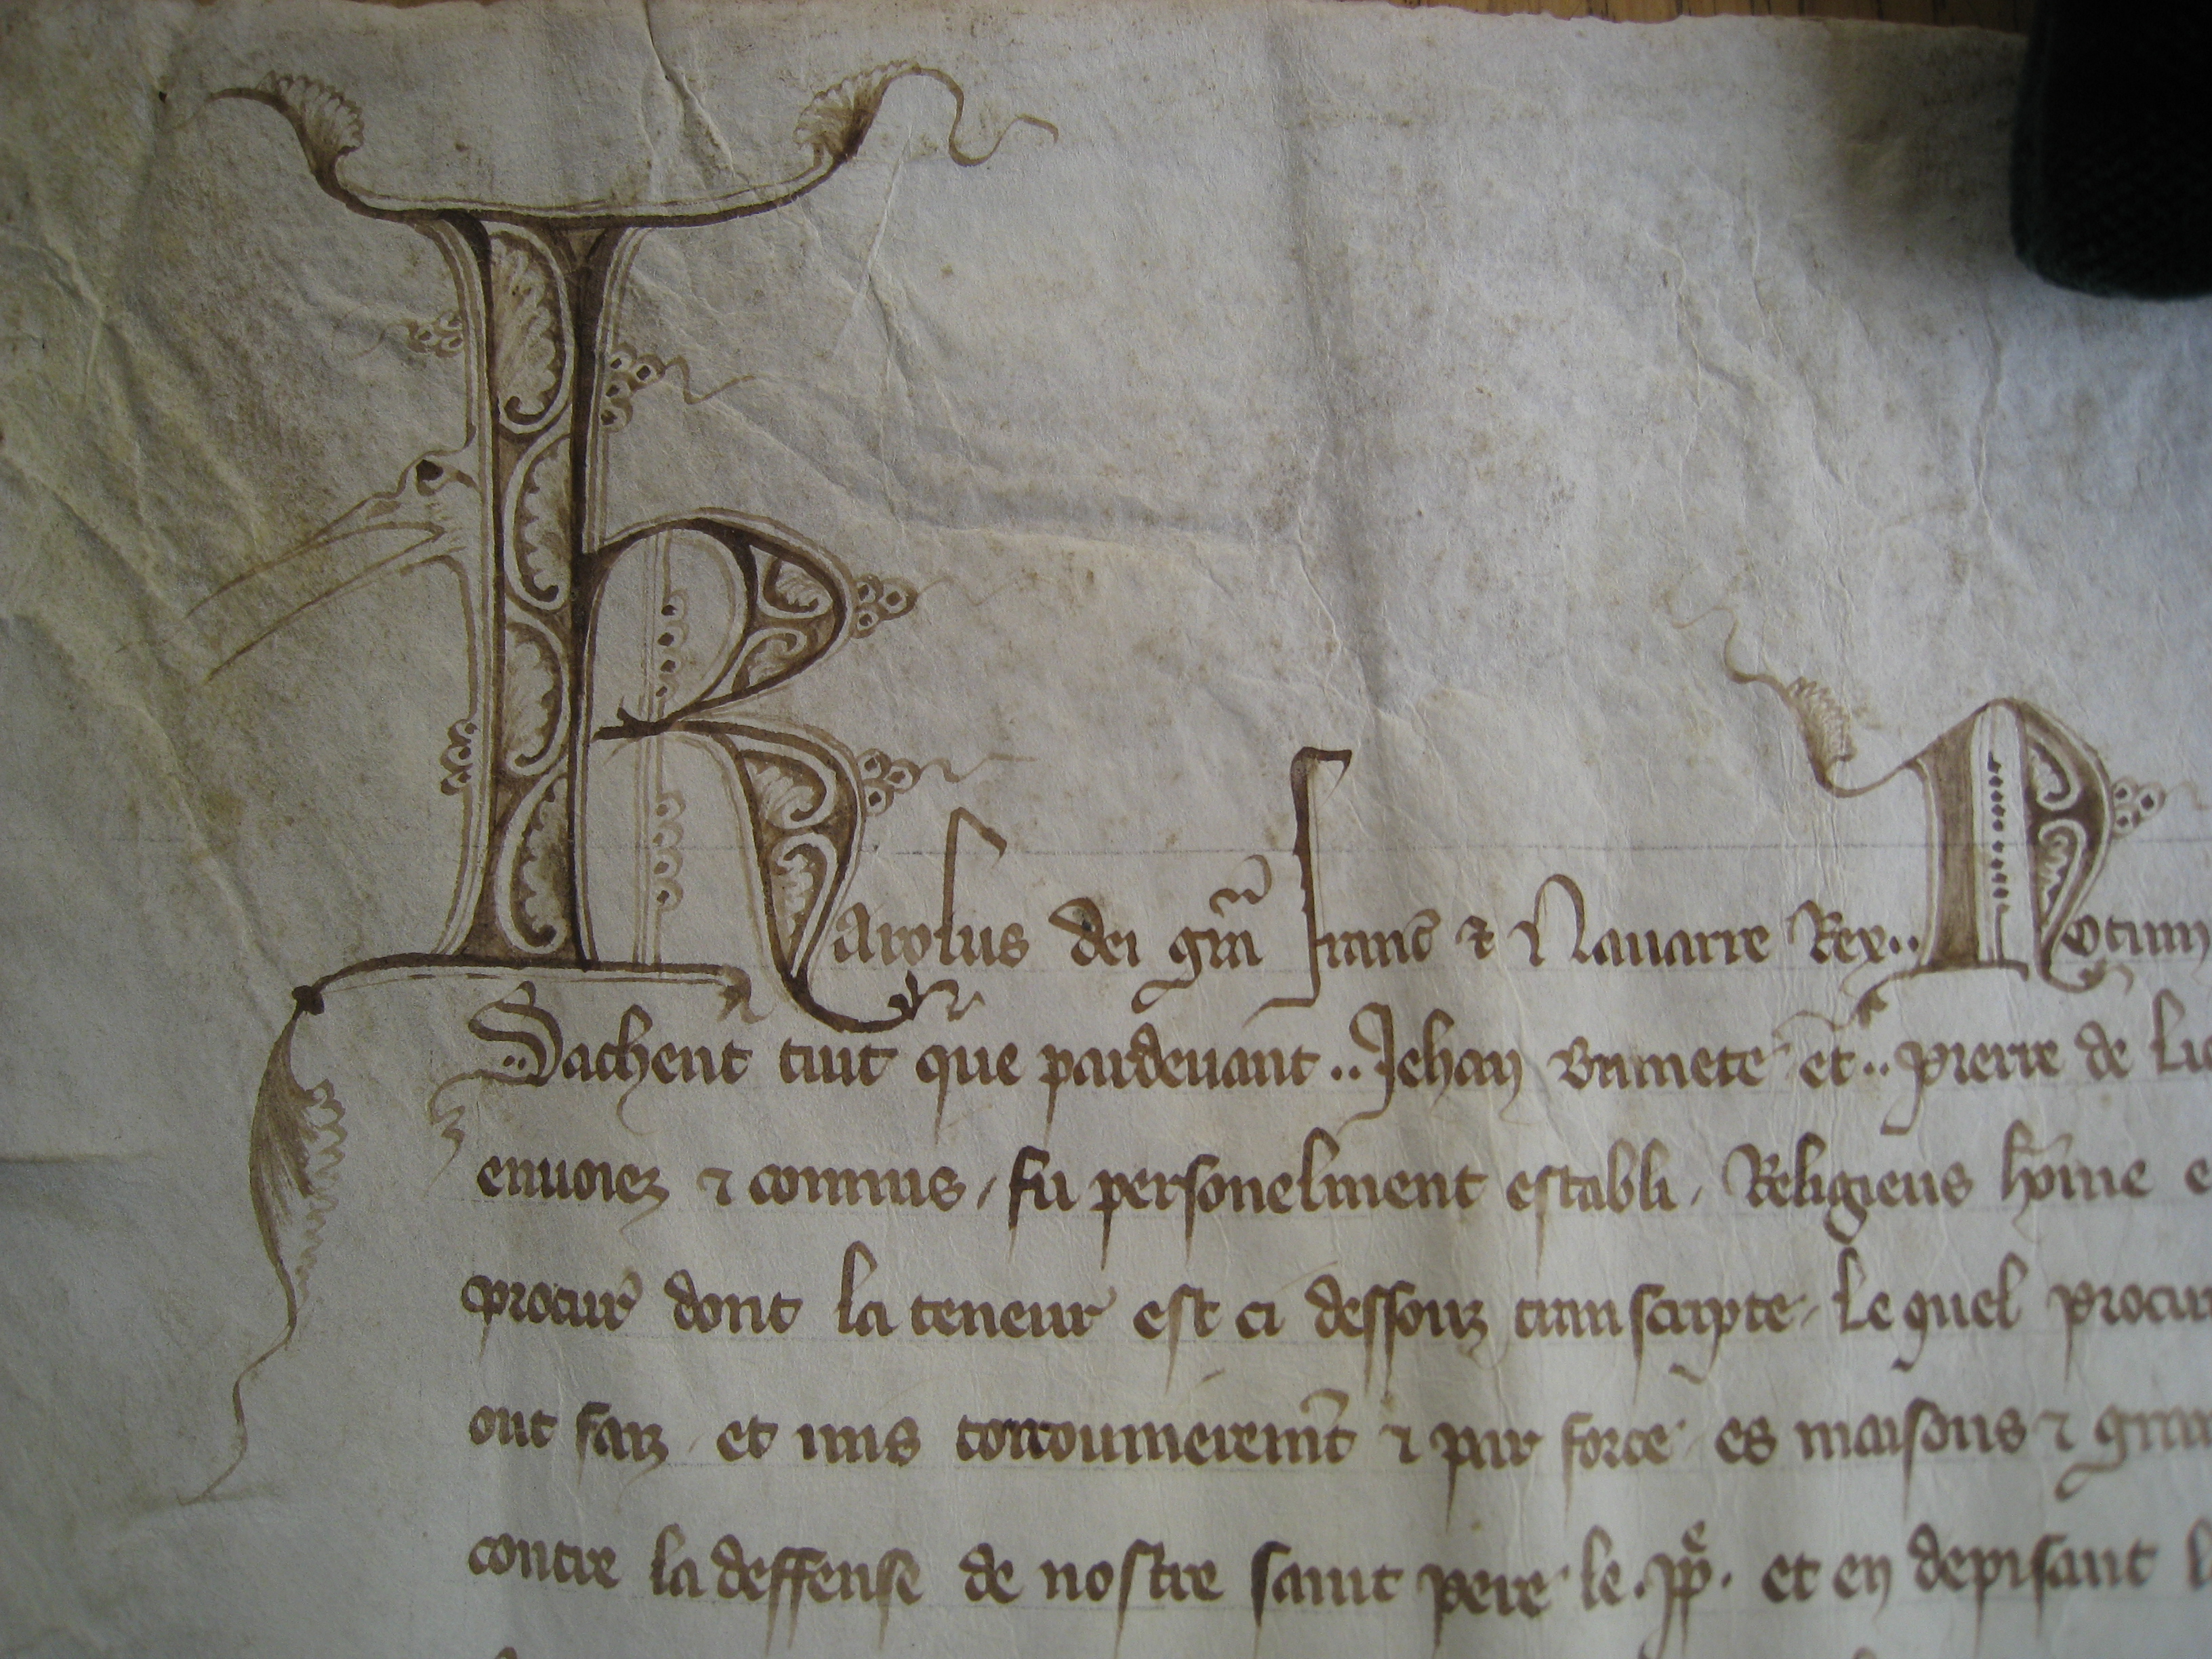 Karolus dei gra Franc et Nauarre Rex.. Notum
..Sachent tuit que pardeuant..Jehan et..Pierre de
enuoiez et commis, fu personelment establi, Religieus home
procur dont la teneur est ci dessouz transcripte, Lequel procur
ont faiz et mis torconnierement et par force es maisons et
contre la deffense de nostre saint pere le.pp. et en depisant